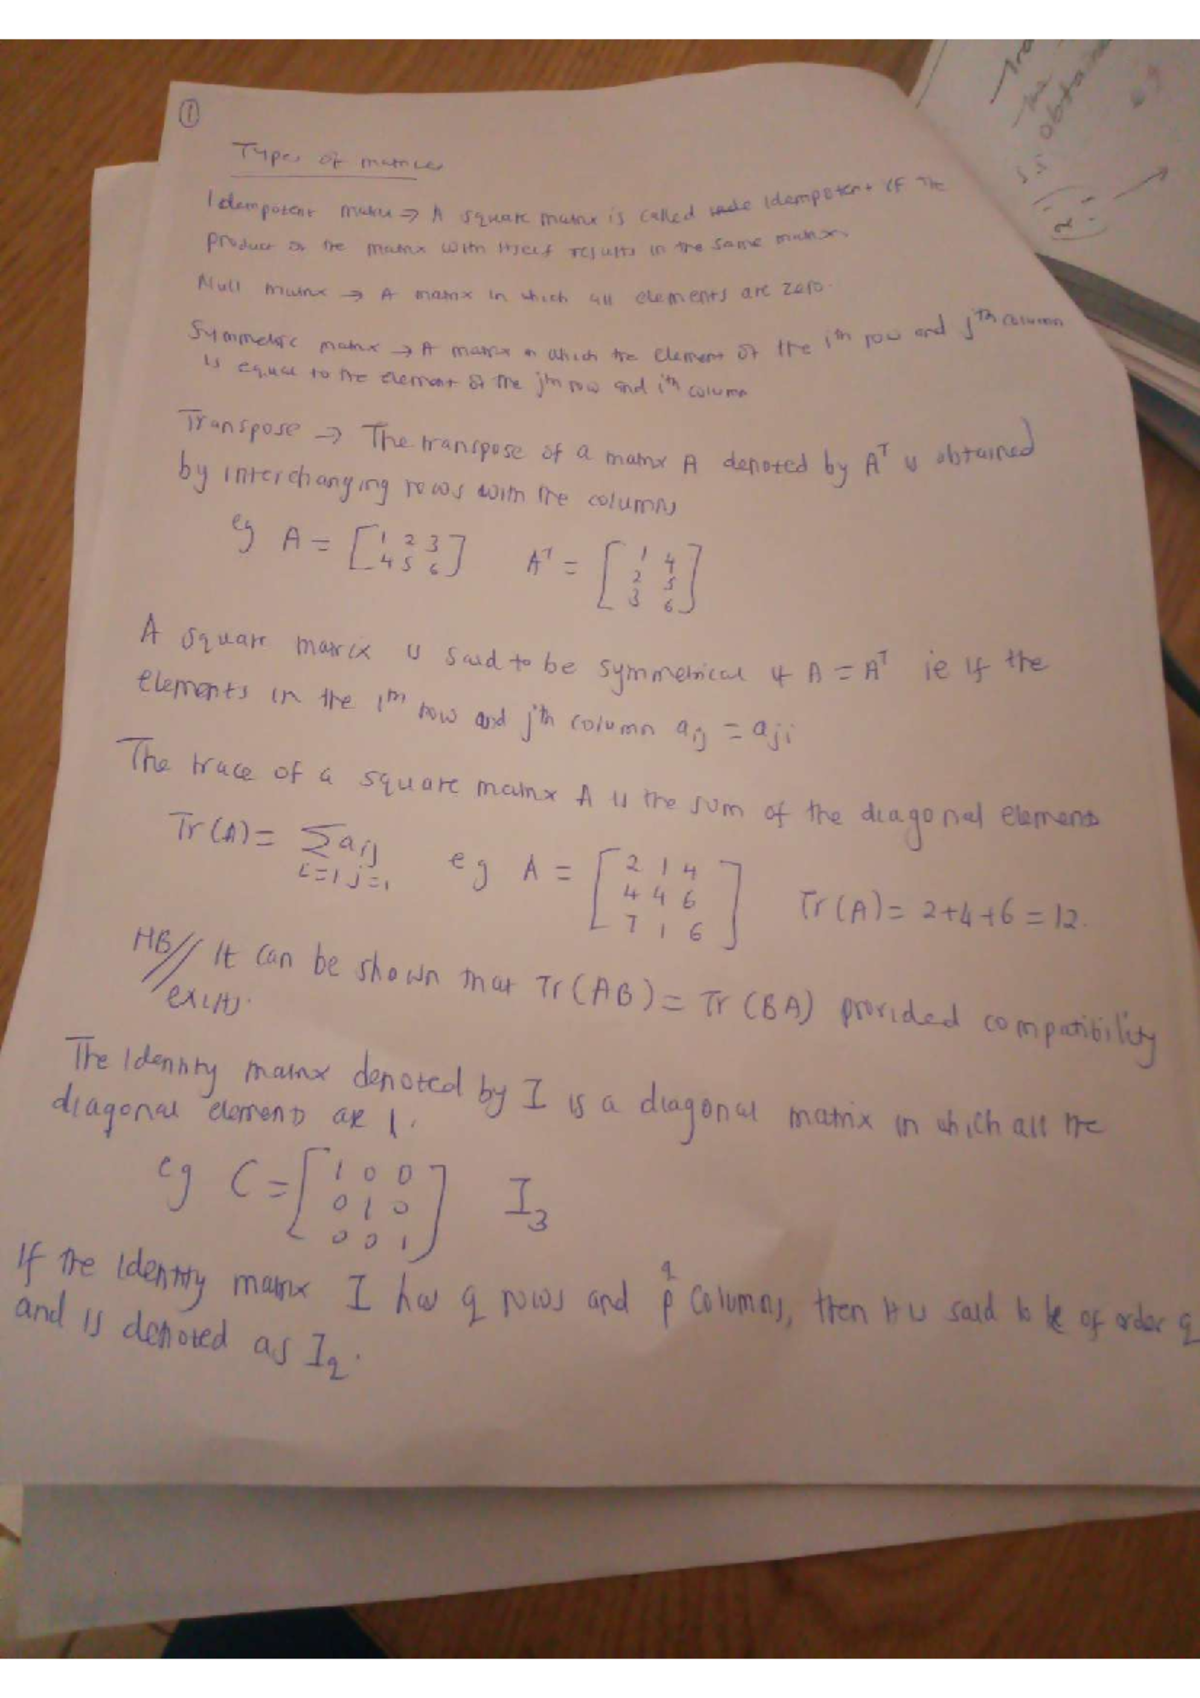 ①
Types of matrices
Idempotent matrix → A square matrix is called idempotent if the
product of the matrix with itself results in the same matrix.
Null matrix → A matrix in which all elements are zero.
Symmetric matrix → A matrix in which the element of the ith row and jth column
is equal to the element of the jth row and ith column
Transpose → The transpose of a matrix A denoted by Aᵀ is obtained
by interchanging rows with the columns
eg A = [1 2 3 Aᵀ = [1 4
4 5 6] 2 5
3 6]
A square matrix is said to be symmetrical if A = Aᵀ ie if the
elements in the ith row and jth column aij = aji
The trace of a square matrix A is the sum of the diagonal elements
Tr(A) = Σaij eg A = [2 1 4
i=1 j=1 4 4 6 Tr(A) = 2+4+6 = 12.
7 1 6]
NB// It can be shown that Tr(AB) = Tr(BA) provided compatibility
exists.
The Identity matrix denoted by I is a diagonal matrix in which all the
diagonal elements are 1.
eg C = [1 0 0
0 1 0 I₃
0 0 1]
If the identity matrix I has q rows and p q columns, then it is said to be of order q
and is denoted as Iq.
obtained
eg